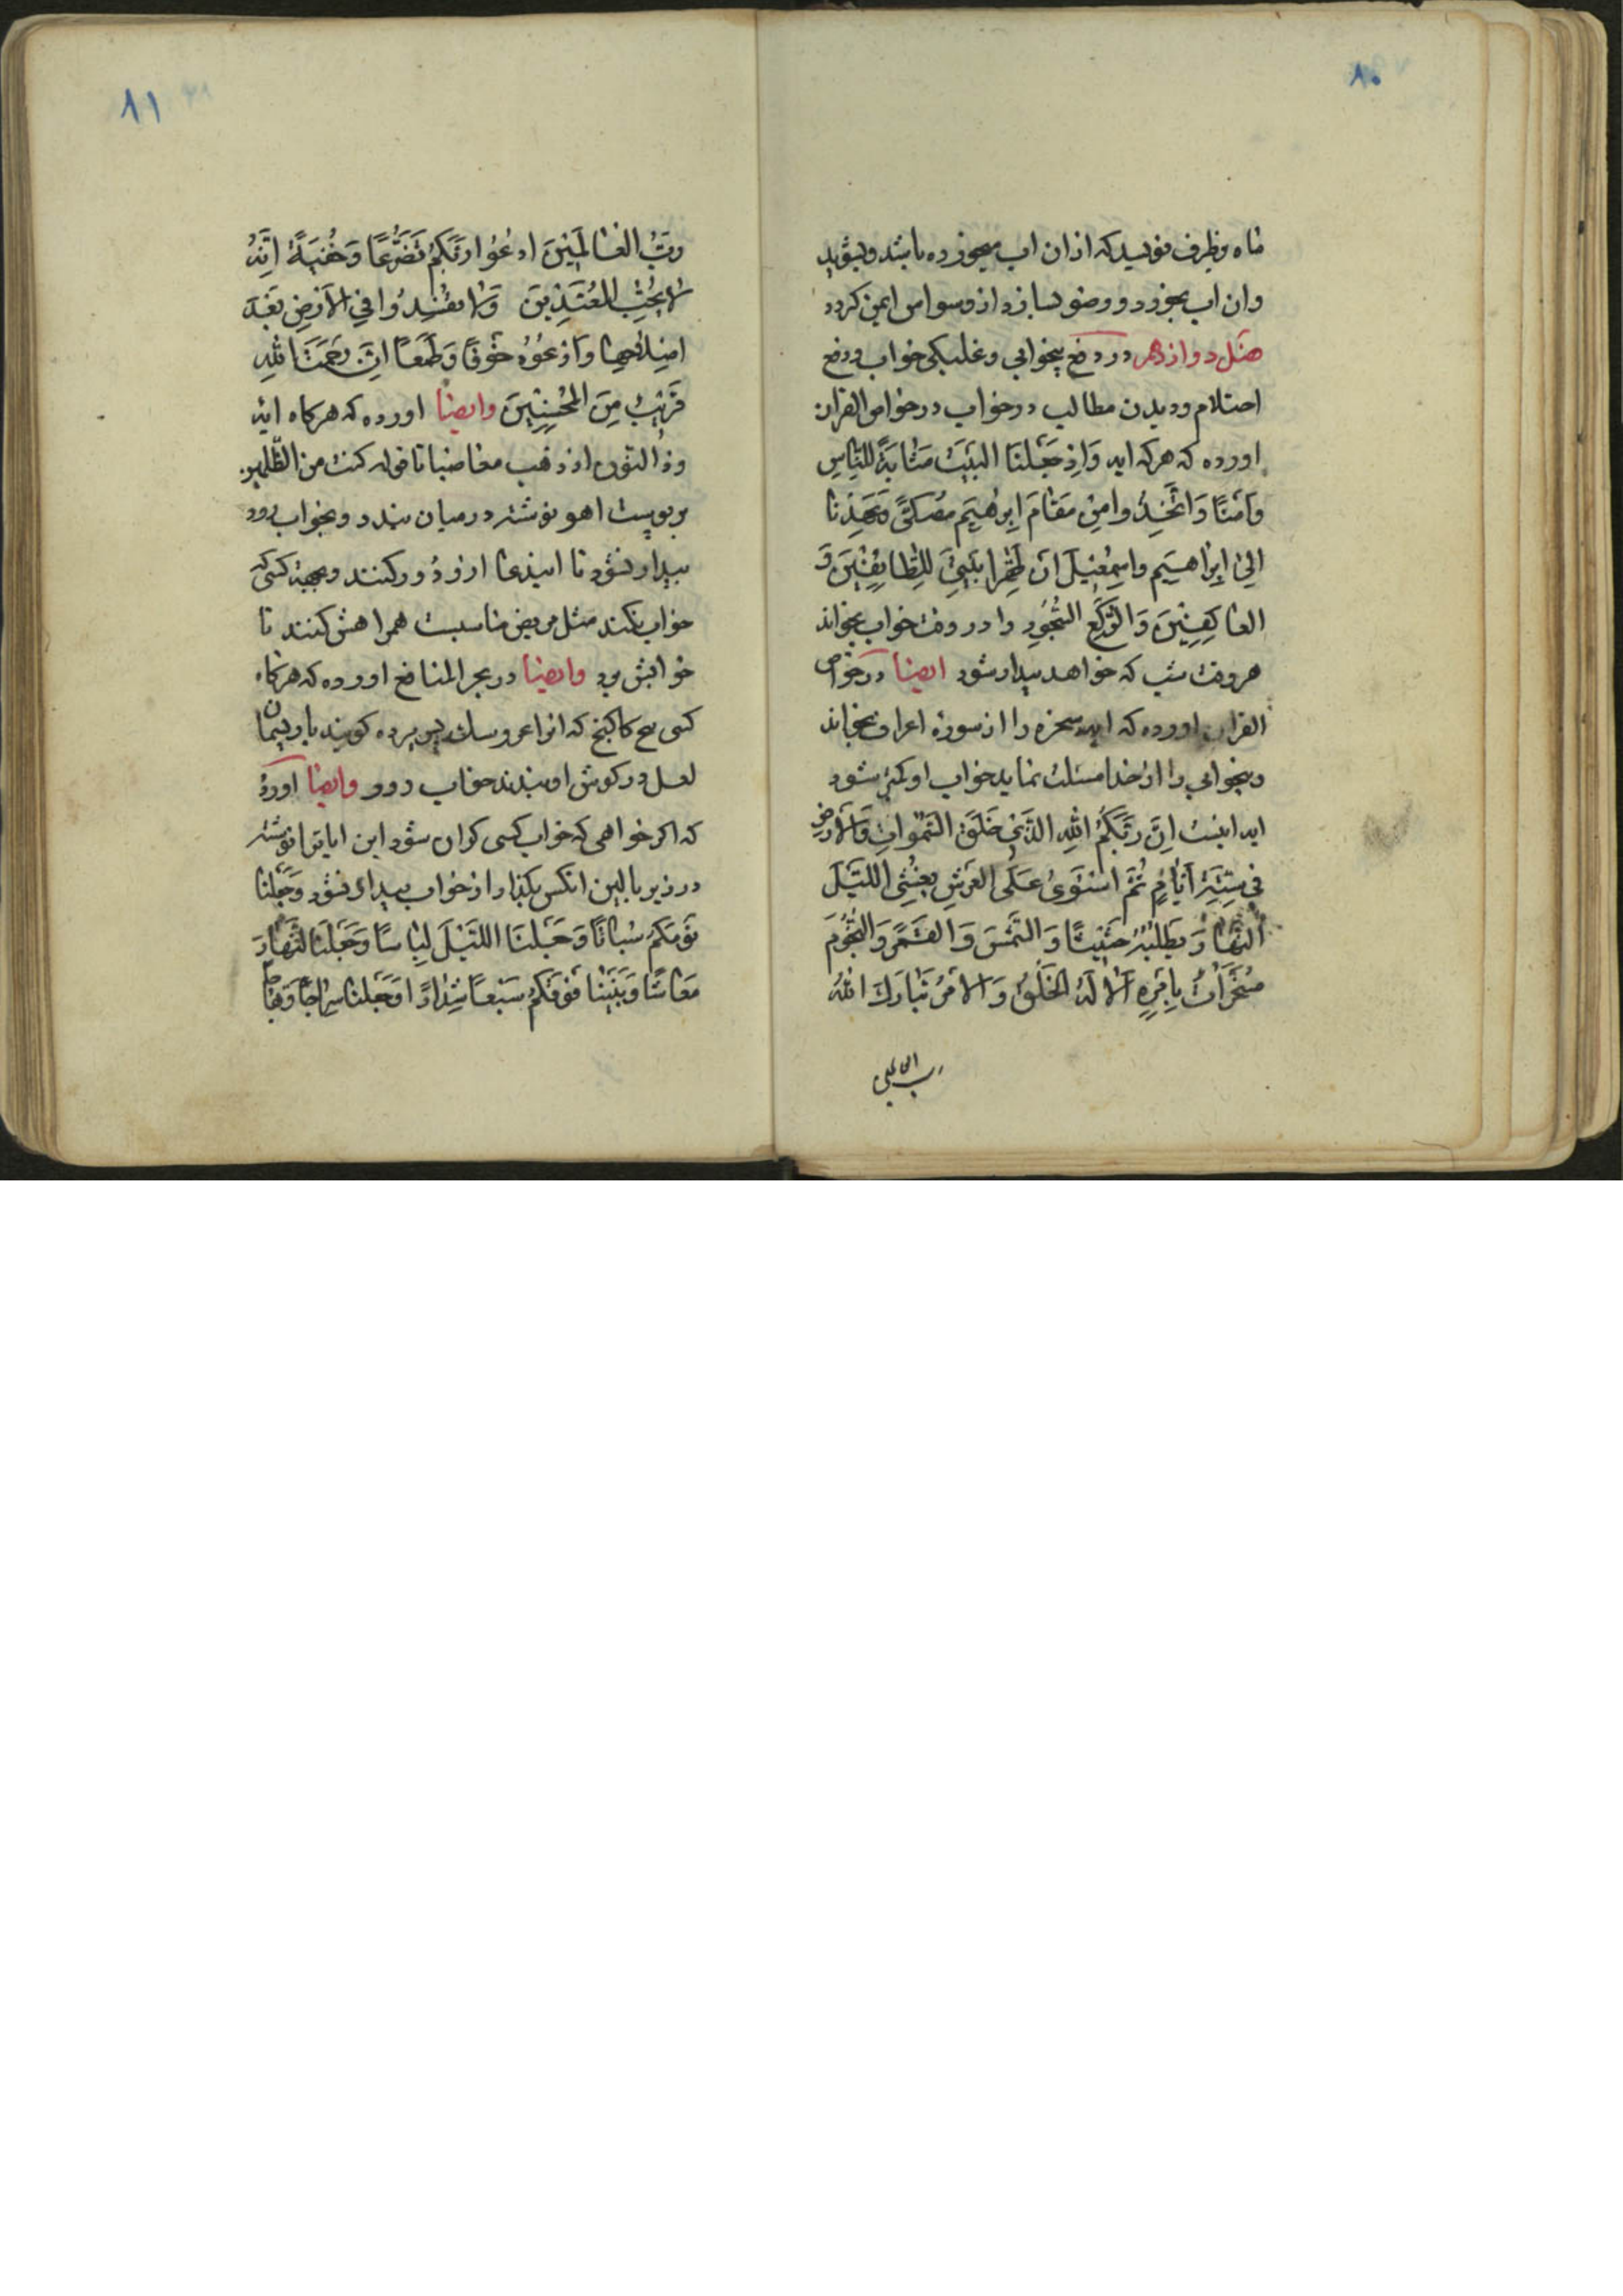 ۸۰
ماه و ظرف نویسد که ازان اب میخورده باشد و بشوید
وان اب بخورد و وضو بسازد از وسواس ایمن کردد
فصل دوازدهم در دفع بیخوابی و غلبکی خواب و دفع
احتلام و دیدن مطالب در خواب در خواص القران
اورده که هرکه ایه وَاِذ جَعَلنَا البَیتَ مَثابَةً لِلنّاسِ
وَاَمنًا وَاتَّخِذُوا مِن مَقامَ اِبرٰهیمَ مُصَلًّی وَعَهِدنا
اِلیٰ اِبراهیمَ واِسمٰعیلَ اَن طَهِّرا بَیتِیَ لِلطّائِفینَ وَ
العاکِفینَ وَالرُّکَّعِ السُّجُودِ را در وقت خواب بخواند
هر وقت شب که خواهد بیدار شود ایضا در خواص
القران اورده که ایه سخره را از سوره اعراف بخواند
و بیخوابی را از خدا مسئلت نماید خواب او کمتر شود
ایه اینست اِنَّ رَبَّکُمُ اللهِ الَّذی خَلَقَ السَّمٰواتِ وَالاَرضِ
فی سِتَّةِ اَیّامٍ ثُمَّ استَویٰ عَلَی العَرشِ یُغشِی اللَّیلَ
النَّهارَ یَطلُبُهُ حَثیثًا وَ الشَّمسَ وَ القَمَرَ وَ النُّجُومَ
مُسَخَّراتٍ بِاَمرِهِ اَلا لَهُ الخَلقُ وَ الاَمرُ تَبارَكَ اللهُ
رب العالمین
۸۱
رَبُّ العالَمینَ ادعُوا رَبَّکُم تَضَرُّعًا وَ خُفیَةً اِنَّهُ
لا یُحِبُّ المُعتَدینَ وَلا تُفسِدُوا فِی الاَرضِ بَعدَ
اِصلاحِها وَادعُوهُ خَوفًا وَطَمَعًا اِنَّ رَحمَتَ اللهِ
قَریبٌ مِنَ المُحسِنینَ وایضا اورده که هرکاه ایه
وذا النون اذ ذهب مغاضبا تا قوله کنت من الظّلمین
بر پوست اهو نوشته در میان بندد و بخواب رود
بیدار نشود تا انیدعا ازو دور کنند و بجهة کسی که
خواب نکند مثل مریض مناسبت همراهش کنند تا
خوابش برد وایضا در بحر المنافع اورده که هرکاه
کسی بیخ کاکنج که انرا عروسک پس پرده کویند با ریسمان
لعل در کوش او بندند خواب رود وایضا اورده
که اکر خواهی که خواب کسی کران شود این ایاترا نوشته
در زیر بالین انکس بکذارد از خواب بیدار نشود وَجَعَلنا
نَومَکُم سُباتًا وَ جَعَلنَا اللَّیلَ لِباسًا وَجَعَلنَا النَّهارَ
مَعاشًا وَبَنَینا فَوقَکُم سَبعًا شِدادًا وَجَعَلنا سِراجًا وَهّاجًا